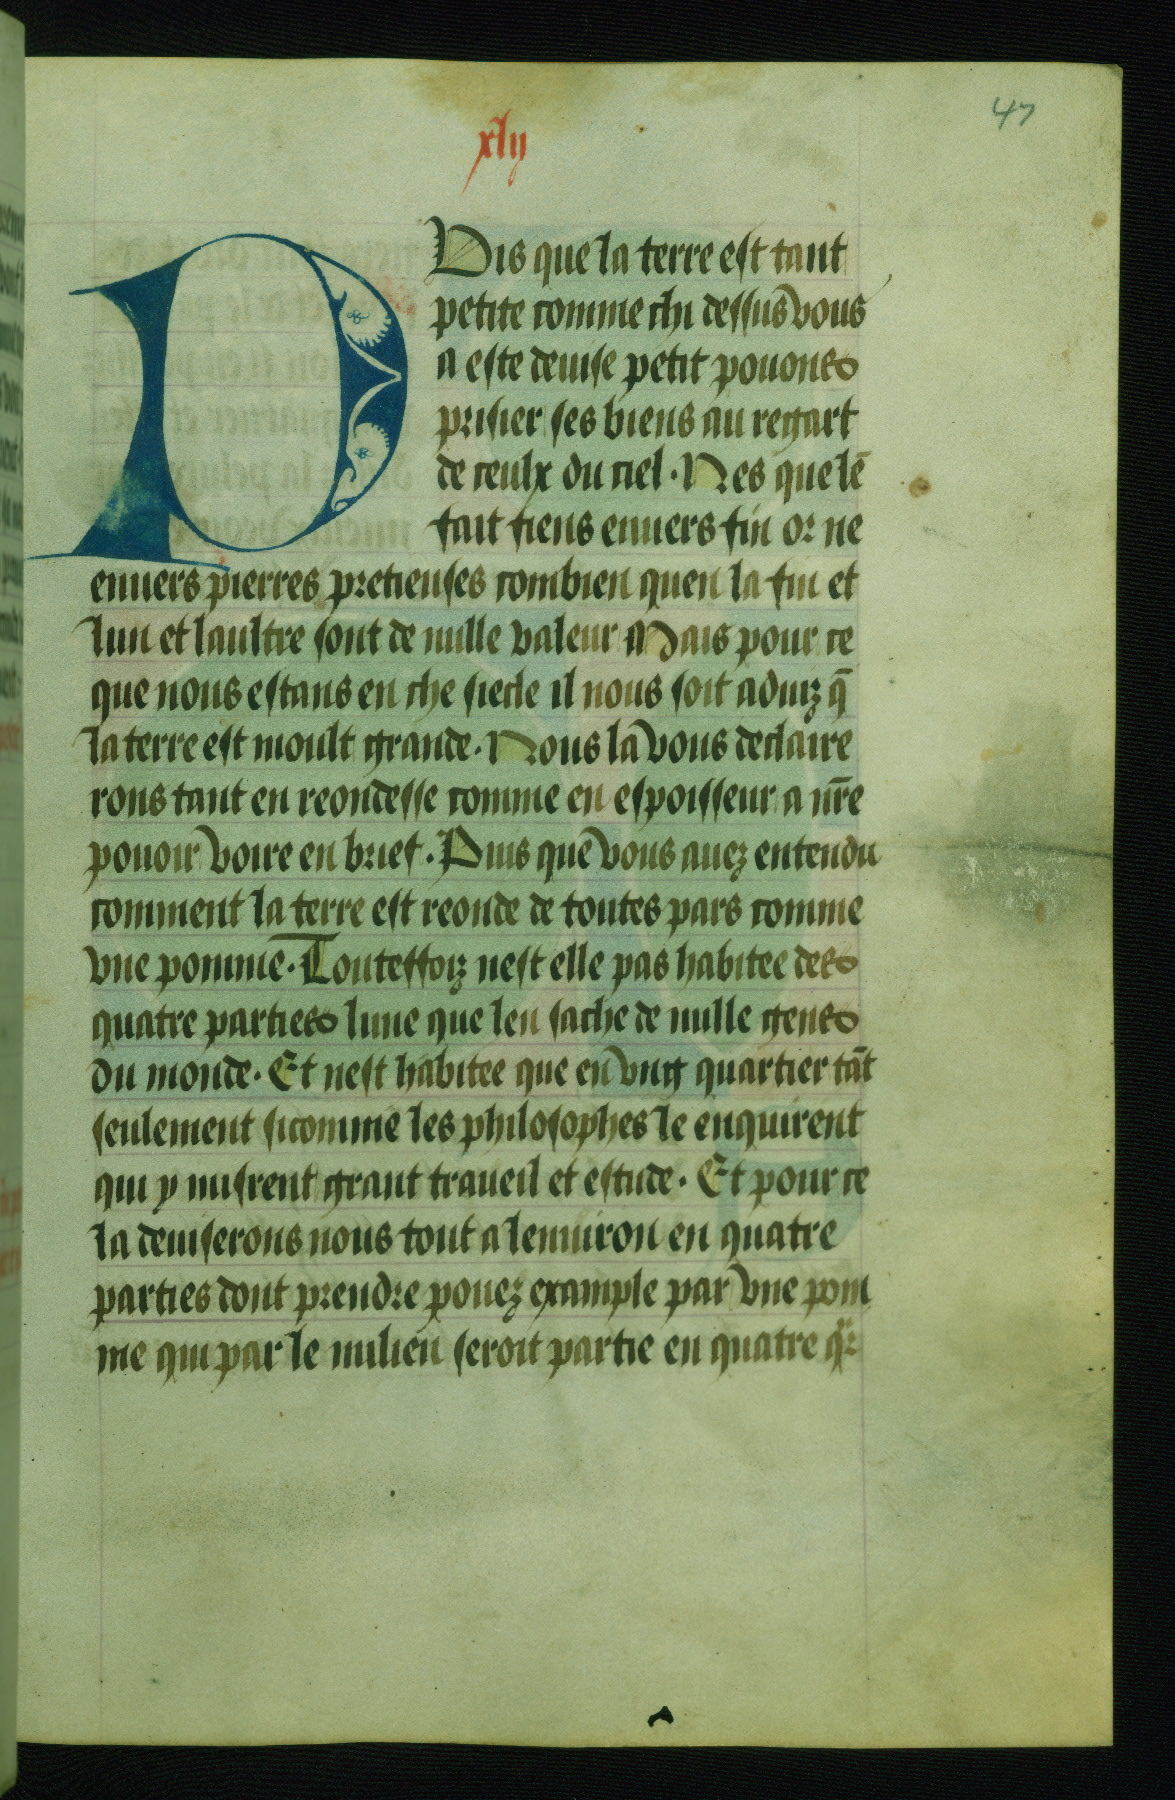 47
xlij
Puis que la terre est tant
petite comme chi dessus vous
a este deuise petit pouons
prisier ses biens au regart
de ceulx du ciel. Nes que lē
fait fiens enuers fin or ne
enuers pierres pretieuses combien quen la fin et
lun et laultre sont de nulle valeur Mais pour ce
que nous estans en che siecle il nous soit aduiz q̄
la terre est moult grande. Nous la vous declaire
rons tant en reondesse comme en espoisseur a nr̄e
pouoir voire en brief. Puis que vous auez entendu
comment la terre est reonde de toutes pars comme
vne pomme. Touteffoiz nest elle pas habitee des
quatre parties lune que len sache de nulle gens
du monde. Et nest habitee que en vng quartier tāt
seulement sicomme les philosophes le enquirent
qui y misrent grant traueil et estude. Et pour ce
la deuiserons nous tout a lenuiron en quatre
parties dont prendre pouez example par vne pom
me qui par le milieu seroit partie en quatre